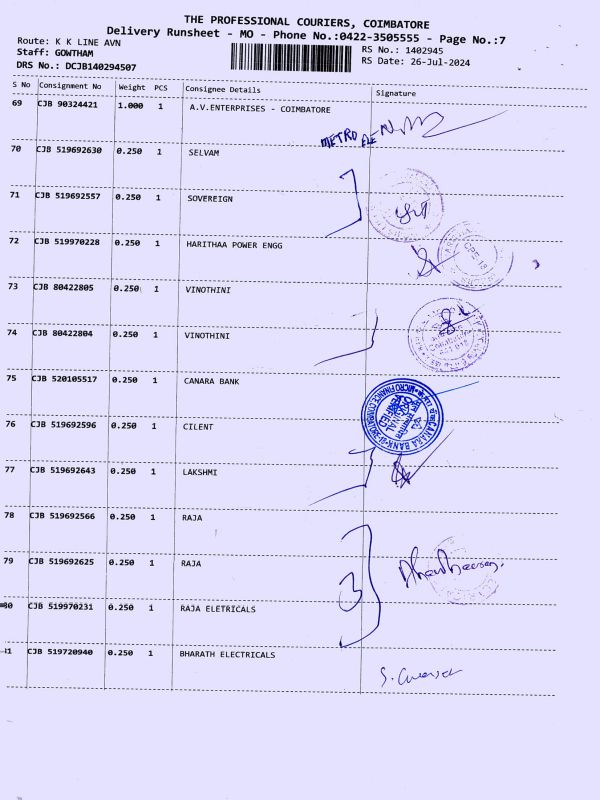 THE PROFESSIONAL COURIERS, COIMBATORE
Delivery Runsheet - MO - Phone No.:0422-3505555 - Page No.:7
Route: K K LINE AVN
Staff: GOWTHAM
DRS No.: DCJB140294507
RS No.: 1402945
RS Date: 26-Jul-2024
S No Consignment No Weight PCS Consignee Details Signature
69 CJB 90324421 1.000 1 A.V.ENTERPRISES - COIMBATORE
METRO
70 CJB 519692630 0.250 1 SELVAM
71 CJB 519692557 0.250 1 SOVEREIGN
72 CJB 519970228 0.250 1 HARITHAA POWER ENGG
73 CJB 80422805 0.250 1 VINOTHINI
74 CJB 80422804 0.250 1 VINOTHINI
75 CJB 520105517 0.250 1 CANARA BANK
CANARA BANK
ORIGINAL
VERIFIED
76 CJB 519692596 0.250 1 CILENT
77 CJB 519692643 0.250 1 LAKSHMI
78 CJB 519692566 0.250 1 RAJA
79 CJB 519692625 0.250 1 RAJA
3
80 CJB 519970231 0.250 1 RAJA ELETRICALS
81 CJB 519720940 0.250 1 BHARATH ELECTRICALS